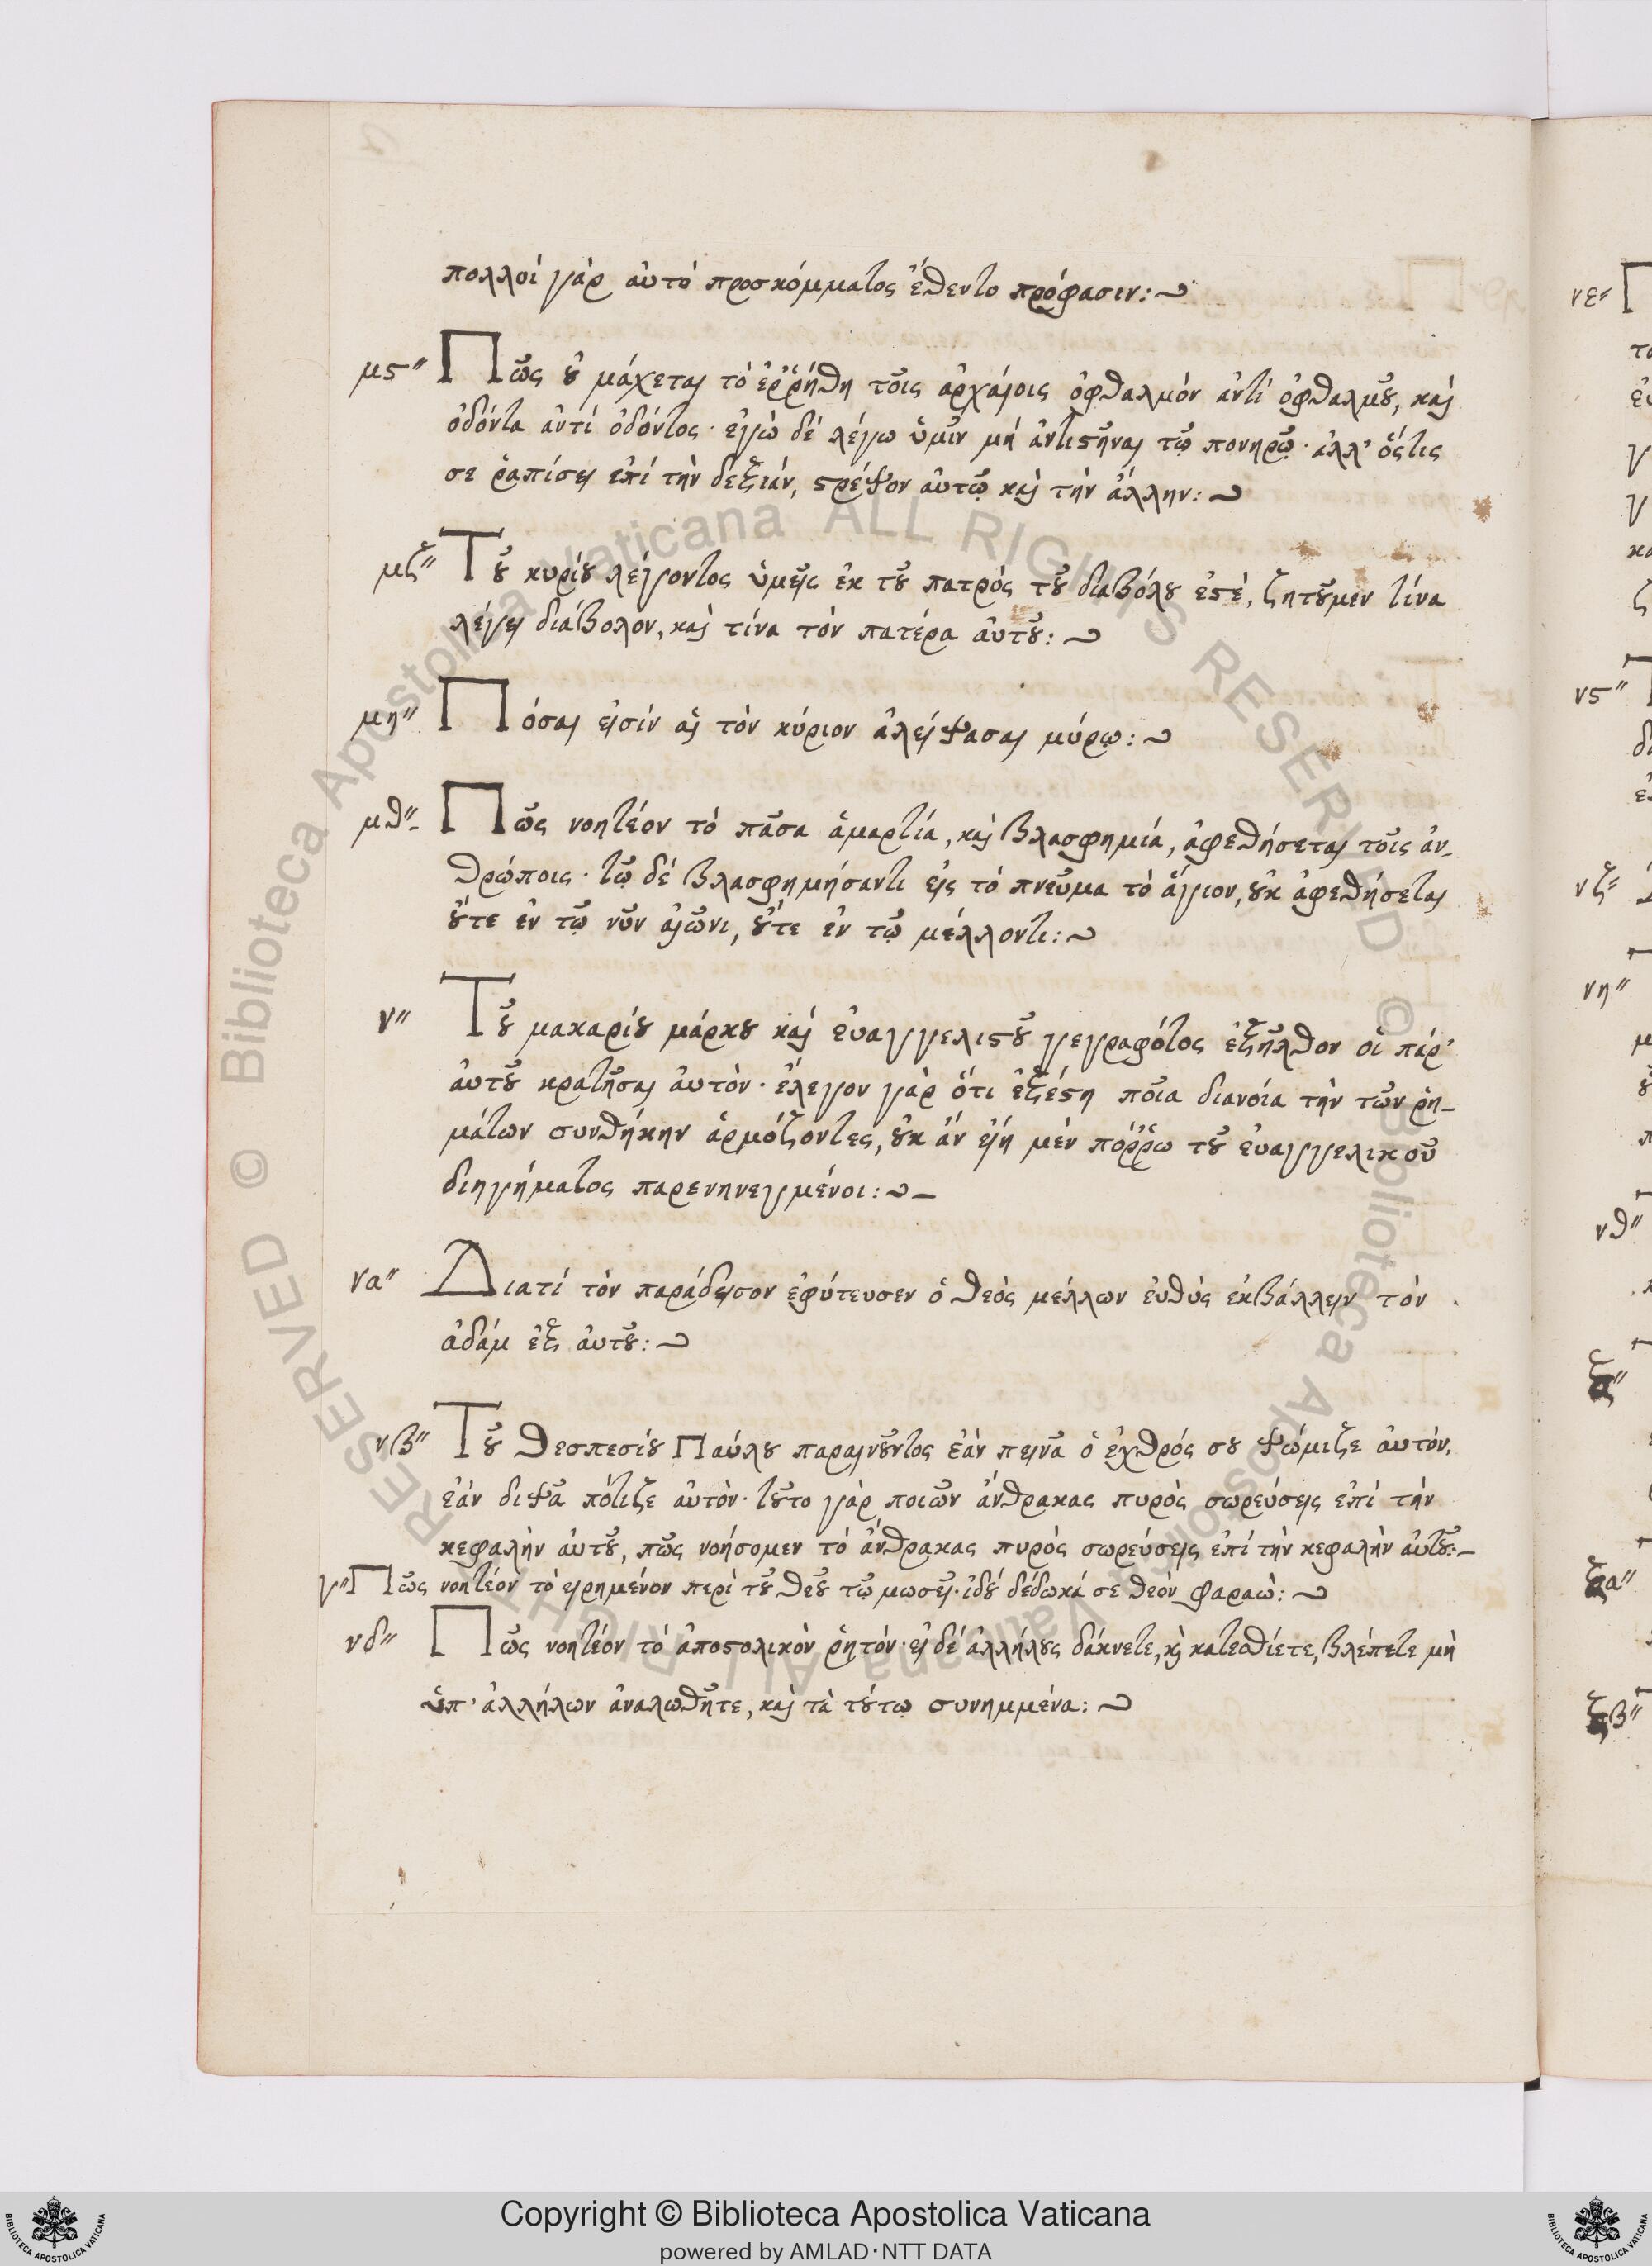 πολλοί γὰρ αὐτὸ προσκόμματος ἔθεντο πρόφασιν:~
μϛ" Πῶς οὐ μάχεται τὸ ἐῤῥήθη τοῖς ἀρχαίοις ὀφθαλμόν ἀντί ὀφθαλμοῦ, καὶ
ὀδόντα ἀντί ὀδόντος· ἐγὼ δέ λέγω ὑμῖν μή ἀντιϛῆναι τῷ πονηρῷ· ἀλλ' ὅςτις
σε ῥαπίσει ἐπί τὴν δεξιάν, ϛρέψον αὐτῷ καὶ τὴν ἄλλην:~
μζ" Τοῦ κυρίου λέγοντος ὑμεῖς ἐκ τοῦ πατρὸς τοῦ διαβόλου ἐϛέ, ζητοῦμεν τίνα
λέγει διάβολον, καὶ τίνα τὸν πατέρα αὐτοῦ:~
μη" Πόσαι εἰσίν αἱ τὸν κύριον ἀλείψασαι μύρῳ:~
μθ" Πῶς νοητέον τὸ πᾶσα ἁμαρτία, καὶ βλασφημία, ἀφεθήσεται τοῖς ἀν-
θρώποις· τῷ δέ βλασφημήσαντι εἰς τὸ πνεῦμα τὸ ἅγιον, οὐκ ἀφεθήσεται
οὔτε ἐν τῷ νῦν αἰῶνι, οὔτε ἐν τῷ μέλλοντι:~
ν" Τοῦ μακαρίου μάρκου καὶ εὐαγγελιϛοῦ γεγραφότος ἐξῆλθον οἱ πάρ'
αὐτοῦ κρατῆσαι αὐτὸν· ἔλεγον γὰρ ὅτι ἐξέϛη ποῖα διανοία τὴν τῶν ῥη-
μάτων συνθήκην ἁρμόζοντες, οὐκ ἄν εἴη μὲν πόῤῥω τοῦ εὐαγγελικοῦ
διηγήματος παρενηνεγμένοι:~-
να" Διατί τὸν παράδεισον ἐφύτευσεν ὁ θεὸς μέλλων εὐθύς ἐκβάλλειν τόν
ἀδάμ ἐξ αὐτοῦ:~
νβ" Τοῦ θεσπεσίου Παύλου παραινοῦντος ἐάν πεινᾶ ὁ ἐχθρός σου ψώμιζε αὐτόν,
ἐάν διψᾶ πότιζε αὐτὸν· τοῦτο γὰρ ποιῶν ἄνθρακας πυρὸς σωρεύσεις ἐπί τήν
κεφαλὴν αὐτοῦ, πῶς νοήσομεν τὸ ἄνθρακας πυρὸς σωρεύσεις ἐπί τὴν κεφαλὴν αὐτοῦ:-
γ" Πῶς νοητέον τὸ εἰρημένον περὶ τοῦ θεοῦ τῷ μωσεῖ· ἰδού δέδωκά σε θεὸν φαραὼ:~
νδ" Πῶς νοητέον τὸ ἀποϛολικὸν ῥητόν· εἰ δέ ἀλλήλους δάκνετε, κὶ κατεσθίετε, βλέπετε μὴ
ὑπ' ἀλλήλων ἀναλωθῆτε, καὶ τὰ τούτῳ συνημμένα:~
νε"
νϛ"
νζ"
νη"
νθ"
ξ"
ξα"
ξβ"
© Biblioteca Apostolica Vaticana ALL RIGHTS RESERVED © Biblioteca Apostolica Vaticana ALL RIGHTS RESERVED
Copyright © Biblioteca Apostolica Vaticana
powered by AMLAD·NTT DATA
BIBLIOTECA APOSTOLICA VATICANA
BIBLIOTECA APOSTOLICA VATICANA